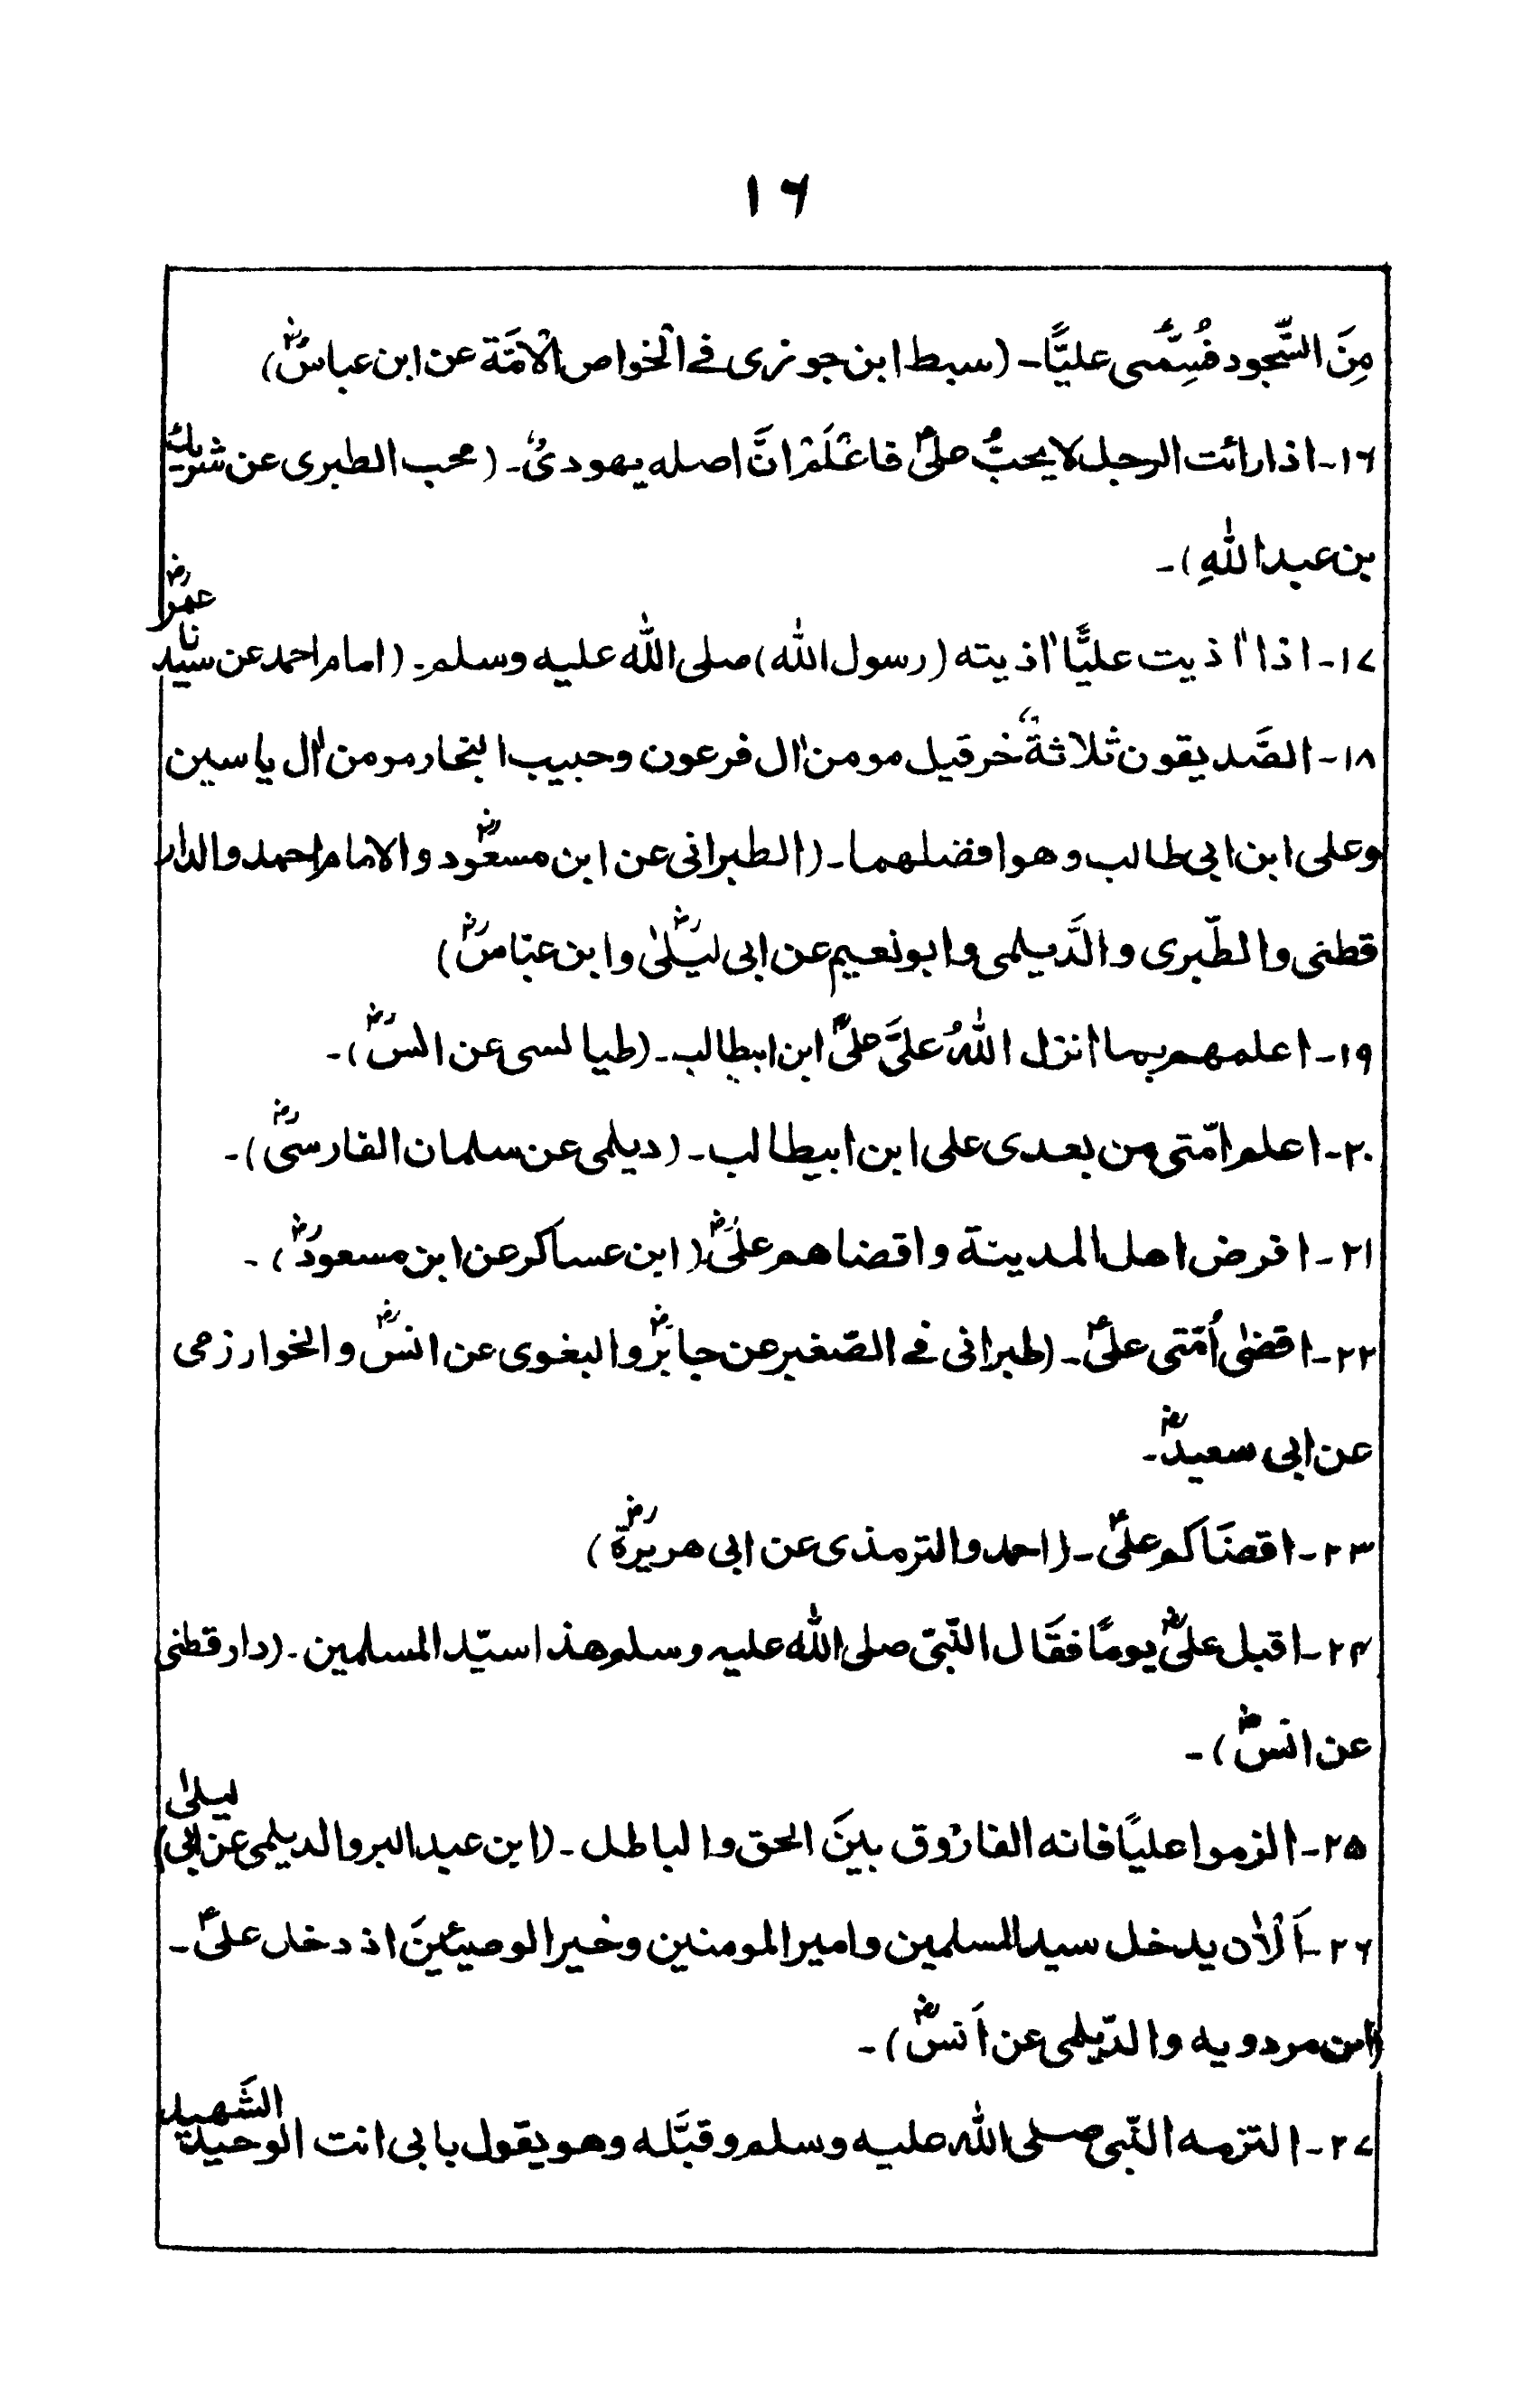 ١٦
مِنَ السُّجود فَسُمِّیَ علیًّا۔ (سبط ابن جوزی فے الخواص الامَّة عن ابن عباسؓ)
١٦۔ اذا رائت الرجل لا یحبُّ علیؑ فاعْلَمْ انَّ اصله یهودیٌ۔ (محب الطبری عن شریك
بن عبد اللهِ)۔
١٧۔ اذا اٰذیت علیًّا اٰذیته (رسول الله) صلی الله علیه وسلم۔ (امام احمد عن سیدنا عمرؓ
١٨۔ الصَّدیقون ثلاثةٌ خرقیل مومن اٰل فرعون وحبیب النجار مومن اٰل یاسین
وعلی ابن ابی طالب وهو افضلهما۔ (الطبرانی عن ابن مسعودؓ والامام احمد والدار
قطنی والطّبری والدَّیلمی وابونعیم عن ابی لیلٰیؓ وابن عبّاسؓ)
١٩۔ اعلمهم بما انزل اللهُ علیَّ علیؑ ابن ابیطالب۔ (طیالسی عن انسؓ)۔
٢٠۔ اعلم امّتی من بعدی علی ابن ابیطالب۔ (دیلمی عن سلمان الفارسیؓ)۔
٢١۔ افرض اهل المدینة واقضاهم علیؓ (ابن عساکر عن ابن مسعودؓ)۔
٢٢۔ اقضٰی اُمّتی علیؑ۔ (طبرانی فے الصّغیر عن جابرؓ والبغوی عن انسؓ والخوارزمی
عن ابی سعیدؓ۔
٢٣۔ اقضَاکم علیؑ۔ (احمد والترمذی عن ابی هریرةؓ)
٢٤۔ اقبل علیؓ یومًا فقَال النّبیّ صلی الله علیه وسلم هذا سیّد المسلمین۔ (دارقطنی
عن انسؓ)۔
٢٥۔ الزموا علیًا فانه الفاروق بینَ الحق والباطل۔ (ابن عبد البر والدیلمی عن ابی لیلیٰ)
٢٦۔ اَلْاٰن یدخل سید المسلمین وامیر المومنین وخیر الوصیئینَ اذ دخل علیؑ۔
(ابن مردویه والدّیلمی عن اَنسؓ)۔
٢٧۔ التزمه النّبی صلی الله علیه وسلم وقبَّله وهو یقول بابی انت الوحید الشَّهید